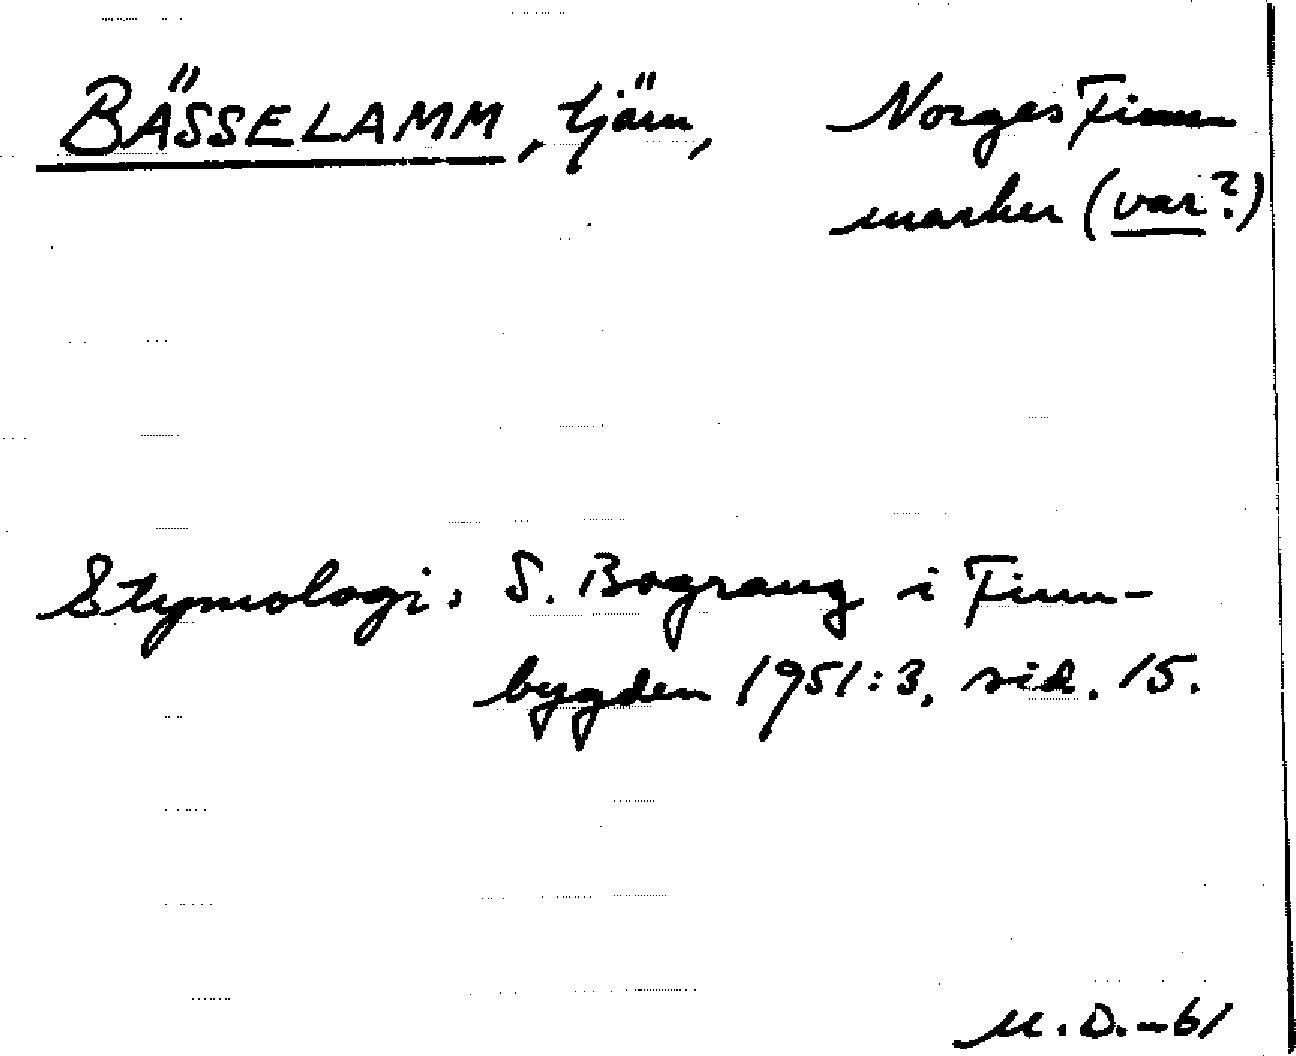 BÄSSELAMM, tjärn, Norges Finn
marker (var?)
Etymologi, S. Bograng i Finn-
bygden 1951:3, sid. 15.
M.D.-61